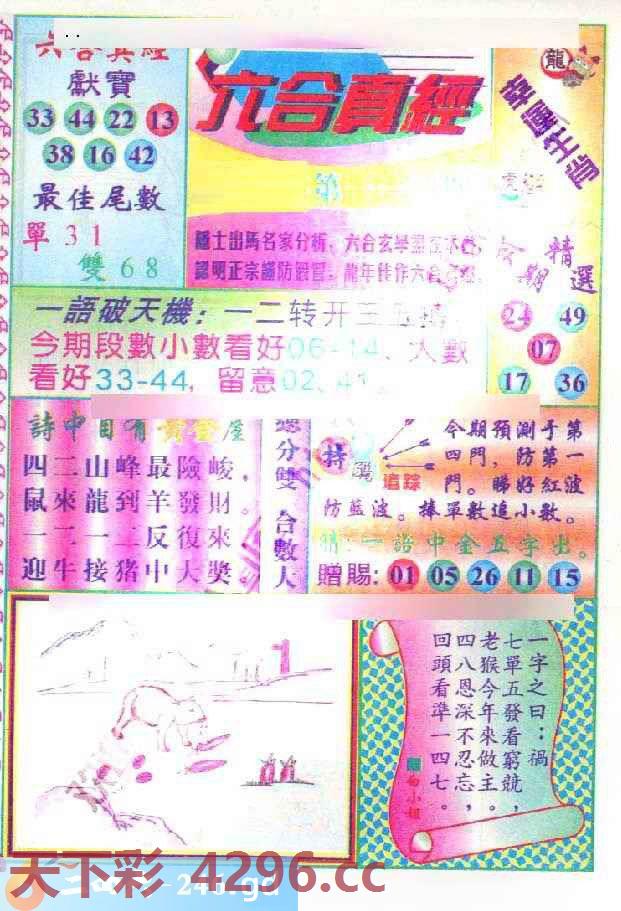 六合真經
獻寶
33 44 22 13
38 16 42
最佳尾數
單 3 1
雙 6 8
六合真經
龍
第
隱士出馬名家分析，六合玄學盡在本
認明正宗謹防假冒，龍年佳作六合
期
精選
24 49
07
17 36
一語破天機：一二转开三五
今期段數小數看好06-14、大數
看好33-44，留意02、41
詩中自有黃金屋
四二山峰最險峻，
鼠來龍到羊發財。
一二一二反復來
迎牛接猪中大獎
總分雙
合數大
特
追踪
今期預測于第
四門，防第一
門。睇好紅波
防藍波。捧單數追小數。
猜：一語中金五字出。
贈賜：01 05 26 11 15
1
一字之曰：禍
七單五發看窮競，
老猴今年來做主。
四八恩深不忍忘，
回頭看準一四七。
白小姐
天下彩 4296.cc
246.gd